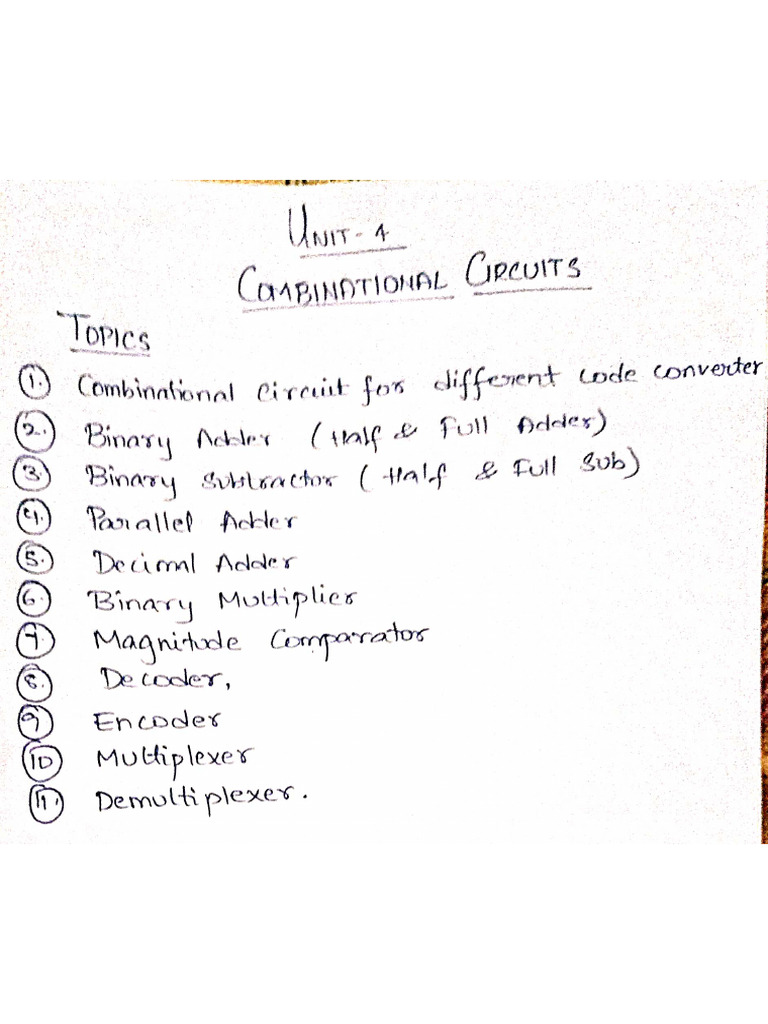 UNIT - 4
COMBINATIONAL CIRCUITS
TOPICS
1. Combinational Circuit for different code converter
2. Binary Adder (Half & Full Adder)
3. Binary Subtractor (Half & Full Sub)
4. Parallel Adder
5. Decimal Adder
6. Binary Multiplier
7. Magnitude Comparator
8. Decoder,
9 Encoder
10 Multiplexer
11. Demultiplexer.